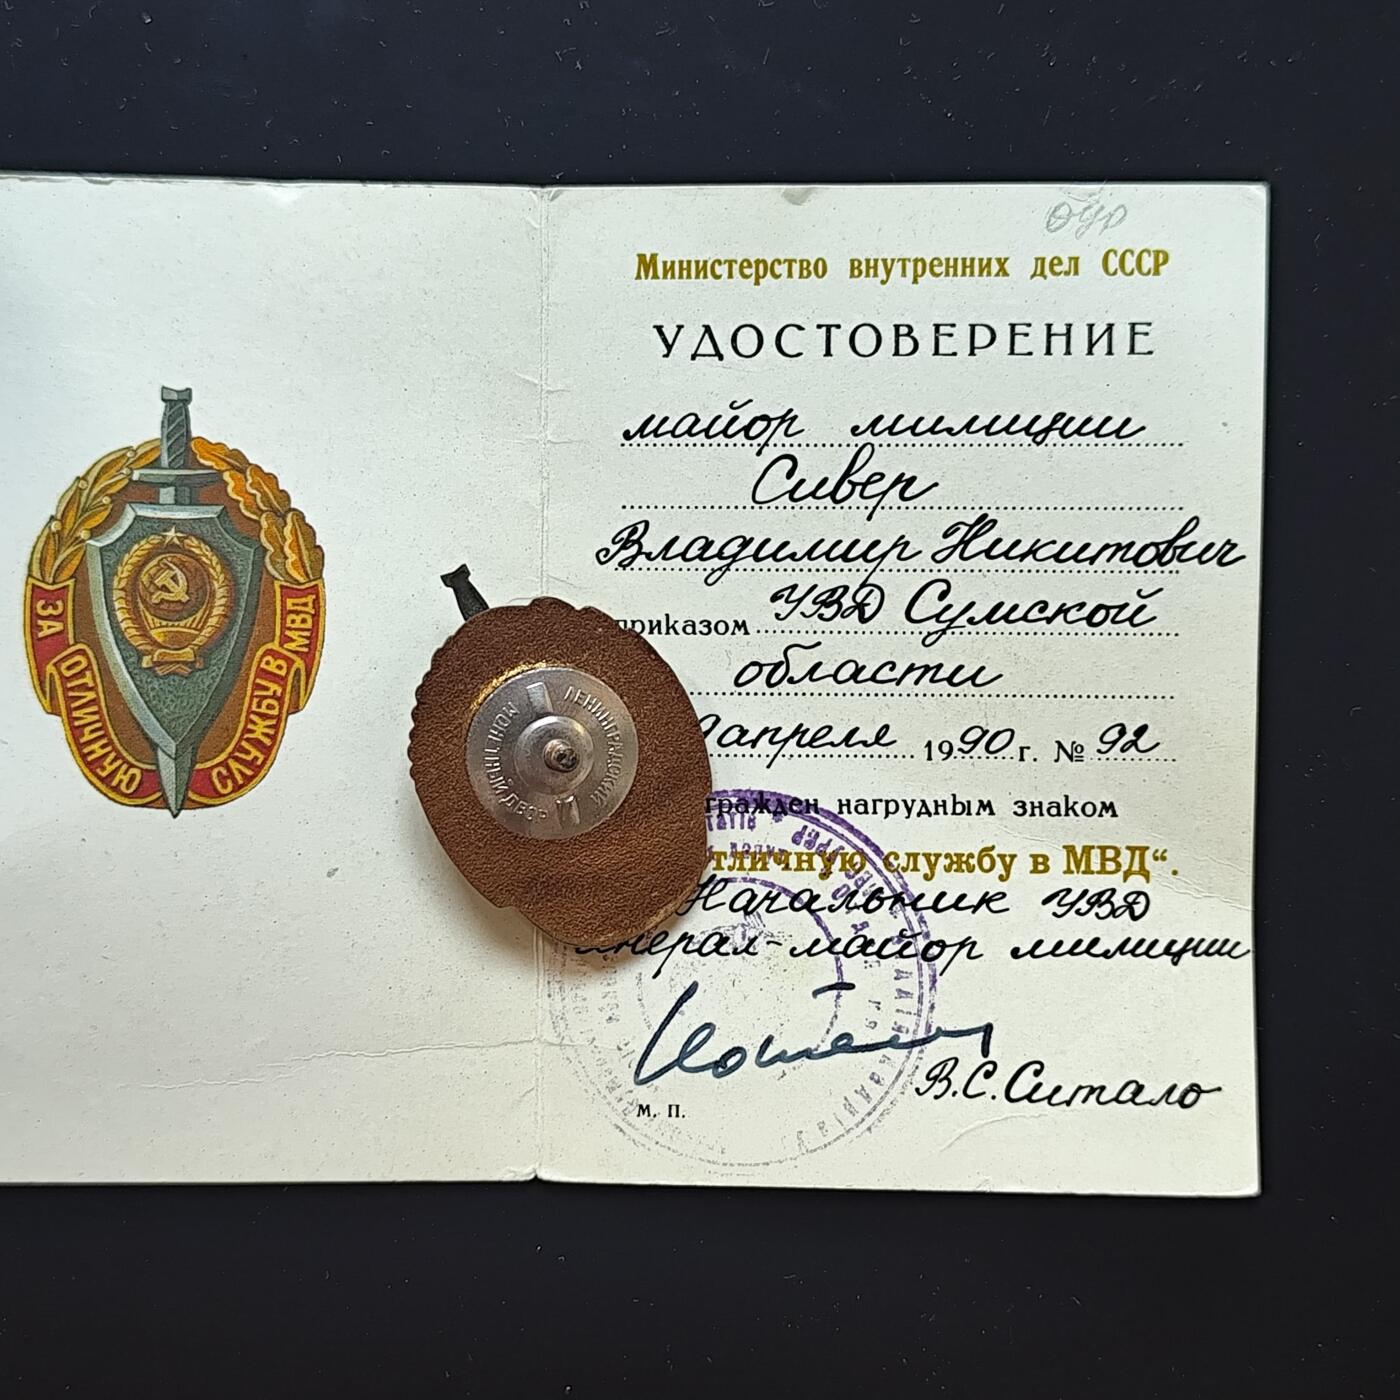 ЗА ОТЛИЧНУЮ СЛУЖБУ В МВД
ЛЕНИНГРАДСКИЙ
МОНЕТНЫЙ ДВОР
Министерство внутренних дел СССР
УДОСТОВЕРЕНИЕ
майор милиции
Сивер
Владимир Никитович
приказом УВД Сумской
области
апреля 1990 г. № 92
гражден нагрудным знаком
тличную службу в МВД“.
Начальник УВД
нерал-майор милиции
М. П.
В.С.Ситало